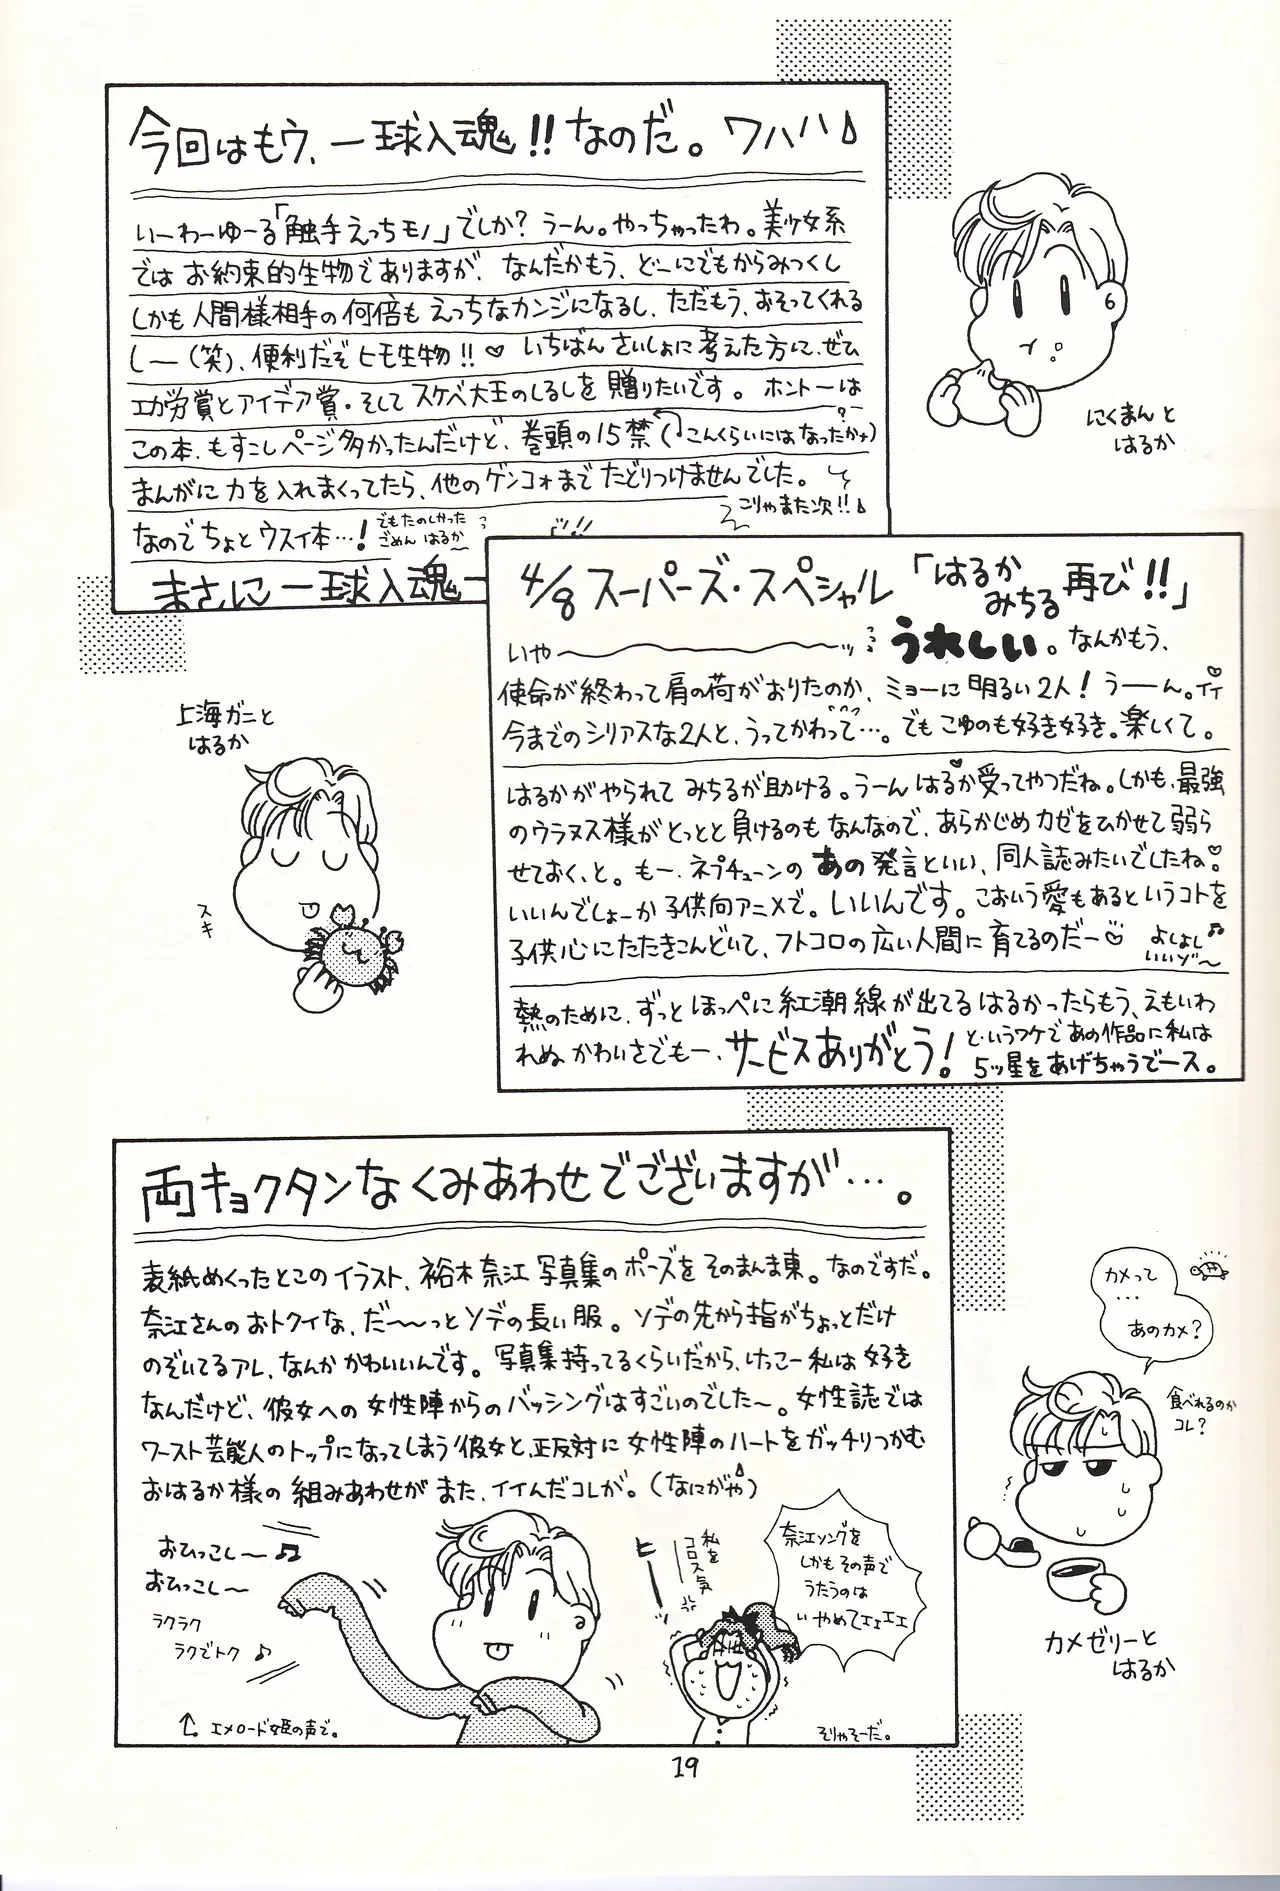 今回はもウ、一球入魂!!なのだ。ワハハ♪
いーわーゆーる「触手えっちモノ」でしか?うーん。やっちゃったわ。美少女系
ではお約束的生物でありますが、なんだかもう、どーにでもからみつくし
しかも人間様相手の何倍もえっちなカンジになるし、ただもう、おそってくれる
しー(笑)、便利だぞヒモ生物!!♡いちばんさいしょに考えた方に、ぜひ
エガ労賞とアイデア賞・そしてスケベ大王のしるしを贈りたいです。ホントーは
この本、もすこしページ多かったんだけど、巻頭の15禁(こんくらいにはなったかナ?)
まんがに力を入れまくってたら、他のゲンコォまでたどりつけませんでした。
なのでちょとウスイ本…!
でもたのしかった
ごめんはるか〜
こりゃまた次!!♪
まさに一球入魂
にくまんと
はるか
4/8スーパーズ・スペシャル「はるかみちる再び!!」
いや〜〜〜ッ うれしい。なんかもう、
使命が終わって肩の荷がおりたのか、ミョーに明るい2人!うーーん。イイ♡
今までのシリアスな2人と、うってかわって…。でもこゆのも好き好き。楽しくて。
はるかがやられてみちるが助ける。うーんはるか受ってやつだね。しかも、最強
のウラヌス様がとっとと負けるのもなんなので、あらかじめカゼをひかせて弱ら
せておく、と。もー、ネプチューンのあの発言といい、同人誌みたいでしたね♡
いいんでしょーか子供向アニメで。いいんです。こおいう愛もあるというコトを
子供心にたたきこんどいて、フトコロの広い人間に育てるのだー♡
よしよし♪
いいゾ〜
熱のために、ずっとほっぺに紅潮線が出てるはるかったらもう、えもいわ
れぬかわいさでもー、サービスありがとう!
というワケであの作品に私は
5ッ星をあげちゃうでース。
上海ガニと
はるか
スキ
両キョクタンなくみあわせでございますが…。
表紙めくったとこのイラスト、裕木奈江写真集のポーズをそのまんま東。なのですだ。
奈江さんのおトクイな、だ〜〜っとソデの長い服。ソデの先から指がちょっとだけ
のぞいてるアレ、なんかかわいいんです。写真集持ってるくらいだから、けっこー私は好き
なんだけど、彼女への女性陣からのバッシングはすごいのでした〜。女性誌では
ワースト芸能人のトップになってしまう彼女と、正反対に女性陣のハートをガッチリつかむ
おはるか様の組みあわせがまた、イイんだコレが。(なにがや)
おひっこし〜♫
おひっこし〜
ラクラク
ラクでトク♪
エメロード姫の声で。
私を
コロス気
ヒーーッ
奈江ソングを
しかもその声で
うたうのは
いやめてェェェェ
そりゃそーだ。
カメって
…
あのカメ?
食べれるのか
コレ?
カメゼリーと
はるか
19